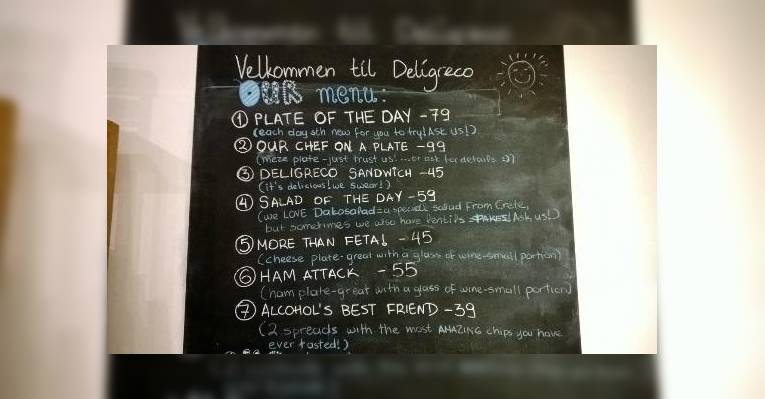 Velkommen til Delígreco
OUR menu:
① PLATE OF THE DAY -79
(each day sth new for you to try! ASK US!)
② OUR CHEF ON A PLATE -99
(meze plate - just trust us! ....or ask for details :))
③ DELIGRECO SANDWICH -45
(it's delicious! we swear!)
④ SALAD OF THE DAY -59
(we LOVE Dakosalad = a special salad From Crete,
but sometimes we also have lentils Ask us!)
⑤ MORE THAN FETA! -45
(cheese plate-great with a glass of wine-small portion)
⑥ HAM ATTACK -55
(ham plate-great with a glass of wine-small portion)
⑦ ALCOHOL'S BEST FRIEND -39
(2 spreads with the most AMAZING chips you have
ever tasted!)